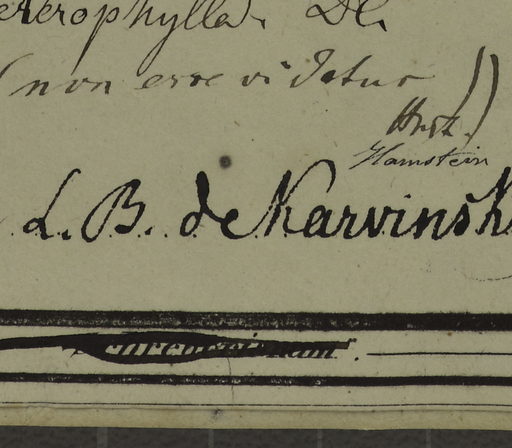 heterophylla. DC.
(non esse videtur
Hnst.)
Hanstein
L. B. de Karvinsk